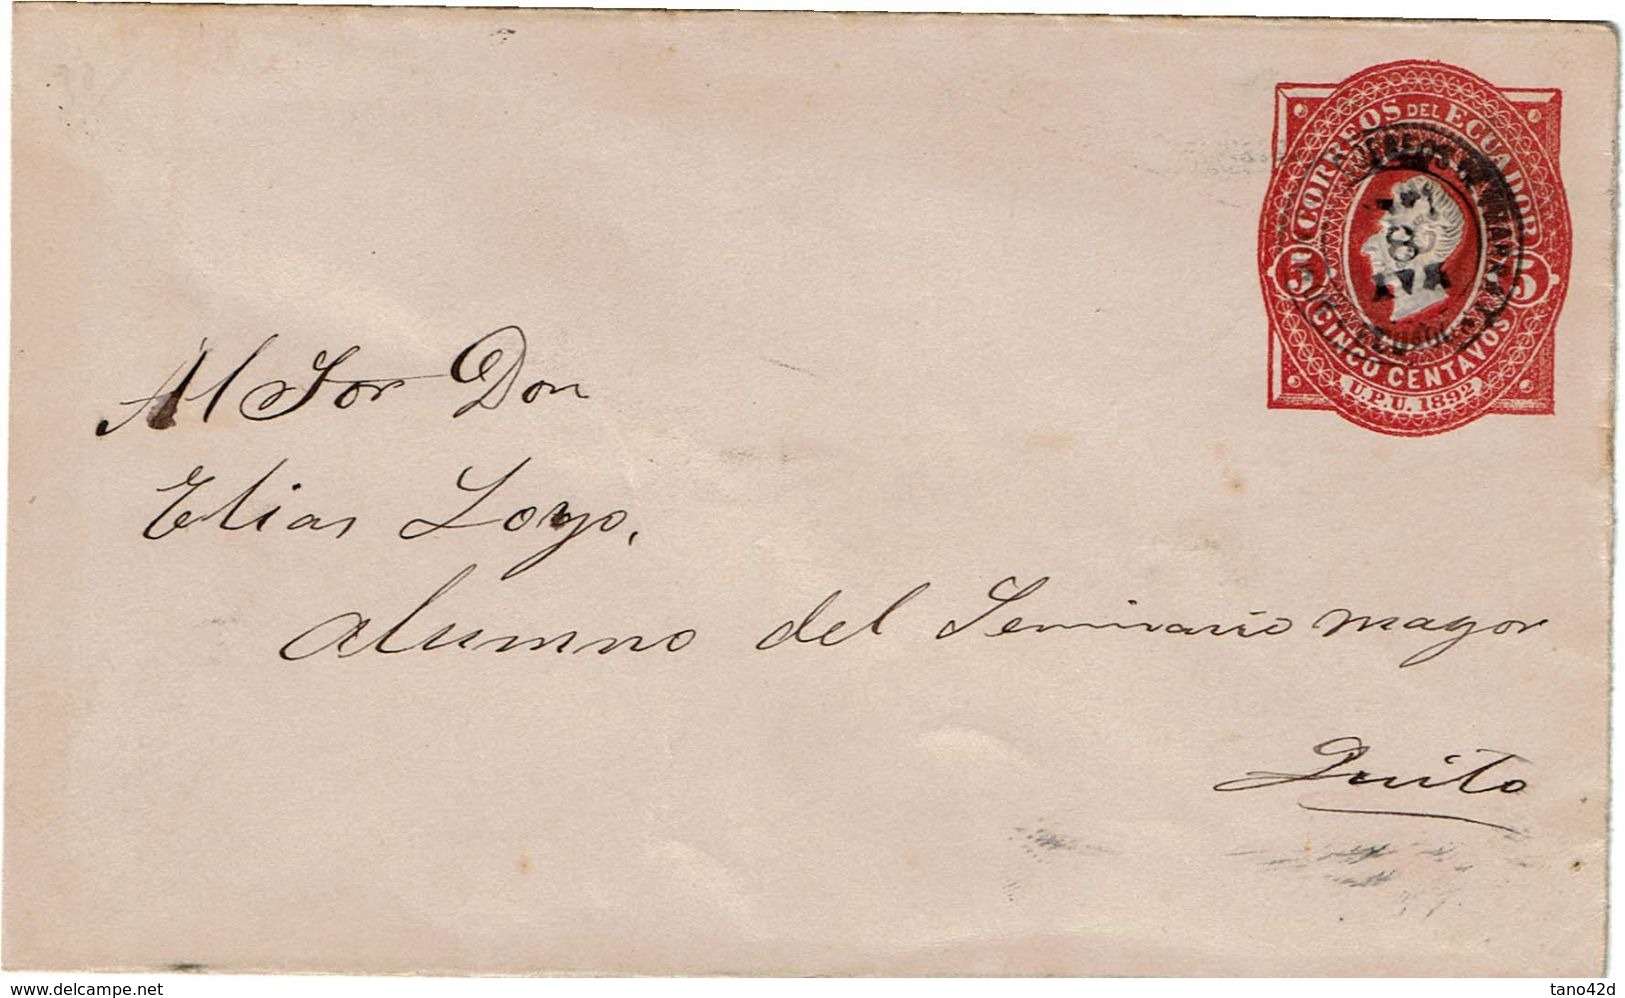 CORREOS DEL ECUADOR
5 5
CINCO CENTAVOS
U.P.U. 1892
8
Al Sor Don
Elias Loyo,
alumno del Seminario mayor
Quito
www.delcampe.net
tano42d